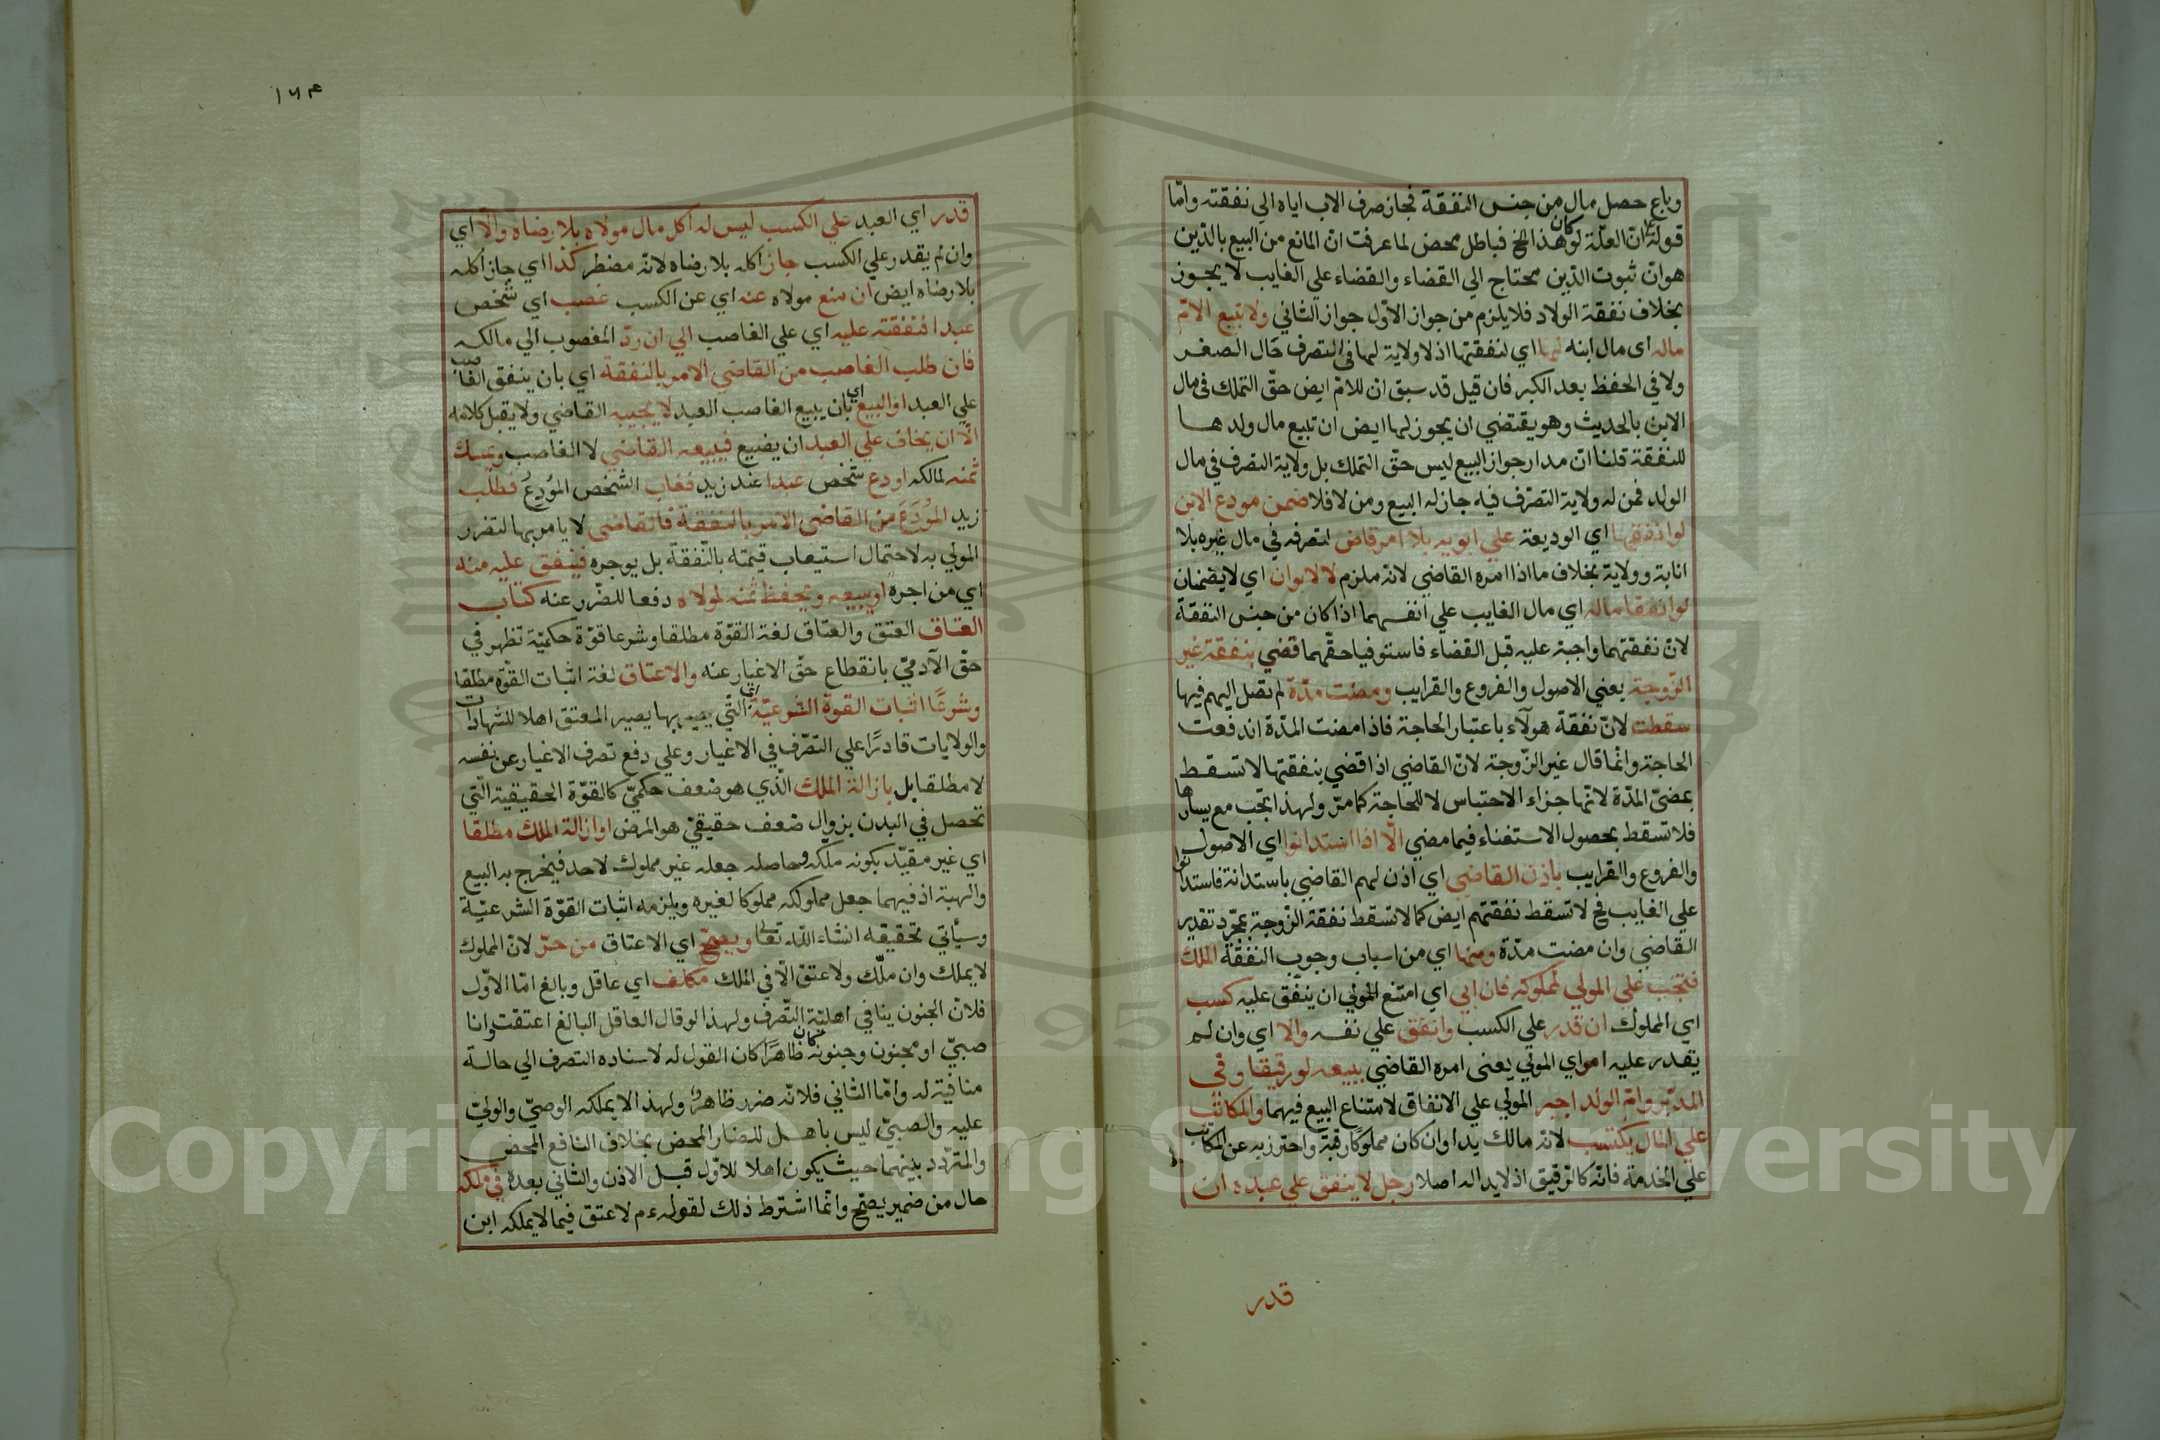 وباع حصل مال من جنس النفقة فجاز صرف الاب اياه الي نفقته وامّا
قوله انّ العلّة لو كان هذا الخ فباطل محض لما عرفت انّ المانع من البيع بالدّين
هو انّ ثبوت الدّين محتاج الي القضاء والقضاء علي الغايب لا يجوز
بخلاف نفقة الولاد فلا يلزم من جواز الاوّل جواز الثّاني ولا تبيع الامّ
ماله اى مال ابنه لها اي لنفقتها اذ لا ولاية لها في التصرف حال الصغر
ولا في الحفظ بعد الكبر فان قيل قد سبق انّ للامّ ايض حقّ التملك في مال
الابن بالحديث وهو يقتضي ان يجوز لها ايض ان تبيع مال ولدها
للنفقة قلنا انّ مدار جواز البيع ليس حقّ التملك بل ولاية التصرف في مال
الولد فمن له ولاية التصرّف فيه جاز له البيع ومن لا فلا ضمن مودع الابن
لو انفقها اي الوديعة علي ابويه بلا امر قاض لتصرفه في مال غيره بلا
انابة وولاية بخلاف ما اذا امره القاضي لانّه ملزم لا لابوان اي لا يضمنان
لو انفقا ماله اي مال الغايب علي انفسهما اذا كان من جنس النفقة
لانّ نفقتهما واجبة عليه قبل القضاء فاستوفيا حقّهما قضي بنفقة غير
الزّوجة يعني الاصول والفروع والقرايب ومضت مدّة لم تصل اليهم فيها
سقطت لانّ نفقة هولآء باعتبار الحاجة فاذا مضت المدّة اندفعت
الحاجة وانّما قال غير الزّوجة لانّ القاضي اذا قضي بنفقتها لا تسقط
بمضيّ المدّة لانّها جزاء الاحتباس لا للحاجة كما مرّ ولهذا تجب مع يسارها
فلا تسقط بحصول الاستغناء فيما مضي الّا اذا استدانوا اي الاصول
والفروع والقرايب باذن القاضي اي اذن لهم القاضي باستدانة فاستدانوا
علي الغايب فح لا تسقط نفقتهم ايض كما لا تسقط نفقة الزّوجة بمجرّد تقدير
القاضي وان مضت مدّة ومنها اي من اسباب وجوب النفقة الملك
فتجب علي المولي لمملوكه فان ابي اي امتنع المولي ان ينفق عليه كسب
اي المملوك ان قدر علي الكسب وانفق علي نفسه والا اي وان لم
يقدر عليه امر اي المولي يعني امره القاضي ببيعه لو رقيقا وفي
المدبّر وامّ الولد اجبر المولي علي الانفاق لامتناع البيع فيهما والمكاتب
علي المال يكتسب لانّه مالك يدا وان كان مملوكا رقبة واحترز به عن المكاتب
علي الخدمة فانّه كالرّقيق اذ لا يد له اصلا رجل لا ينفق علي عبده ان
قدر
١٦٣
قدر اي العبد علي الكسب ليس له اكل مال مولاه بلا رضاه والّا اي
وان لم يقدر علي الكسب جاز اكله بلا رضاه لانّه مضطر كذا اي جاز اكله
بلا رضاه ايض ان منع مولاه عنه اي عن الكسب غصب اي شخص
عبدا فنفقته عليه اي علي الغاصب الي ان ردّ المغصوب الي مالكه
فان طلب الغاصب من القاضي الامر بالنفقة اي بان ينفق الغاصب
علي العبد او البيع اي بان يبيع الغاصب العبد لا يجيبه القاضي ولا يقبل كلامه
الّا ان يخاف علي العبد ان يضيع فيبيعه القاضي لا الغاصب ويمسك
ثمنه لمالكه اودع شخص عبدا عند زيد فغاب الشخص المُودِعُ فطلب
زيد المُودَعُ من القاضي الامر بالنفقة فالقاضي لا يامر بها لتضرر
المولي به لاحتمال استيعاب قيمته بالنّفقة بل يوجره فينفق عليه منه
اي من اجره او يبيعه ويحفظ ثمنه لمولاه دفعا للضّرر عنه كتاب
العتاق العتق والعتاق لغة القوّة مطلقا وشرعا قوّة حكميّة تظهر في
حقّ الآدميّ بانقطاع حقّ الاغيار عنه والاعتاق لغة اثبات القوّة مطلقا
وشرعًا اثبات القوة الشرعيّة اي التّي بها يصير المعتق اهلا للشهادات
والولايات قادرًا علي التصّرف في الاغيار وعلي رفع تصرف الاغيار عن نفسه
لا مطلقا بل بازالة الملك الّذي هو ضعف حكميّ كالقوّة الحقيقية التّي
تحصل في البدن بزوال ضعف حقيقيّ هو المرض او ازالة الملك مطلقا
اي غير مقيّد بكونه ملكه وحاصله جعله غير مملوك لاحد فيخرج به البيع
والهبة اذ فيهما جعل مملوكه مملوكا لغيره ويلزمه اثبات القوّة الشرعيّة
وسيأتي تحقيقه انشاء الله تعالي ويصحّ اي الاعتاق من حرّ لانّ المملوك
لا يملك وان ملّك ولا عتق الّا في الملك مكلف اي عاقل وبالغ امّا الاوّل
فلانّ الجنون ينافي اهليّة التّصّرف ولهذا لو قال العاقل البالغ اعتقت وانا
صبيّ او مجنون وجنونه كان ظاهرًا كان القول له لاسناده التصرف الي حالة
منافية له وامّا الثاني فلانّه ضرر ظاهرا ولهذا لا يملكه الوصيّ والوليّ
عليه والصبيّ ليس باهل للضار المحض بخلاف النافع المحض
والمتردد بينهما حيث يكون اهلا للاوّل قبل الاذن والثاني بعده في ملكه
حال من ضمير يصحّ وانّما اشترط ذلك لقوله ءم لا عتق فيما لا يملكه ابن